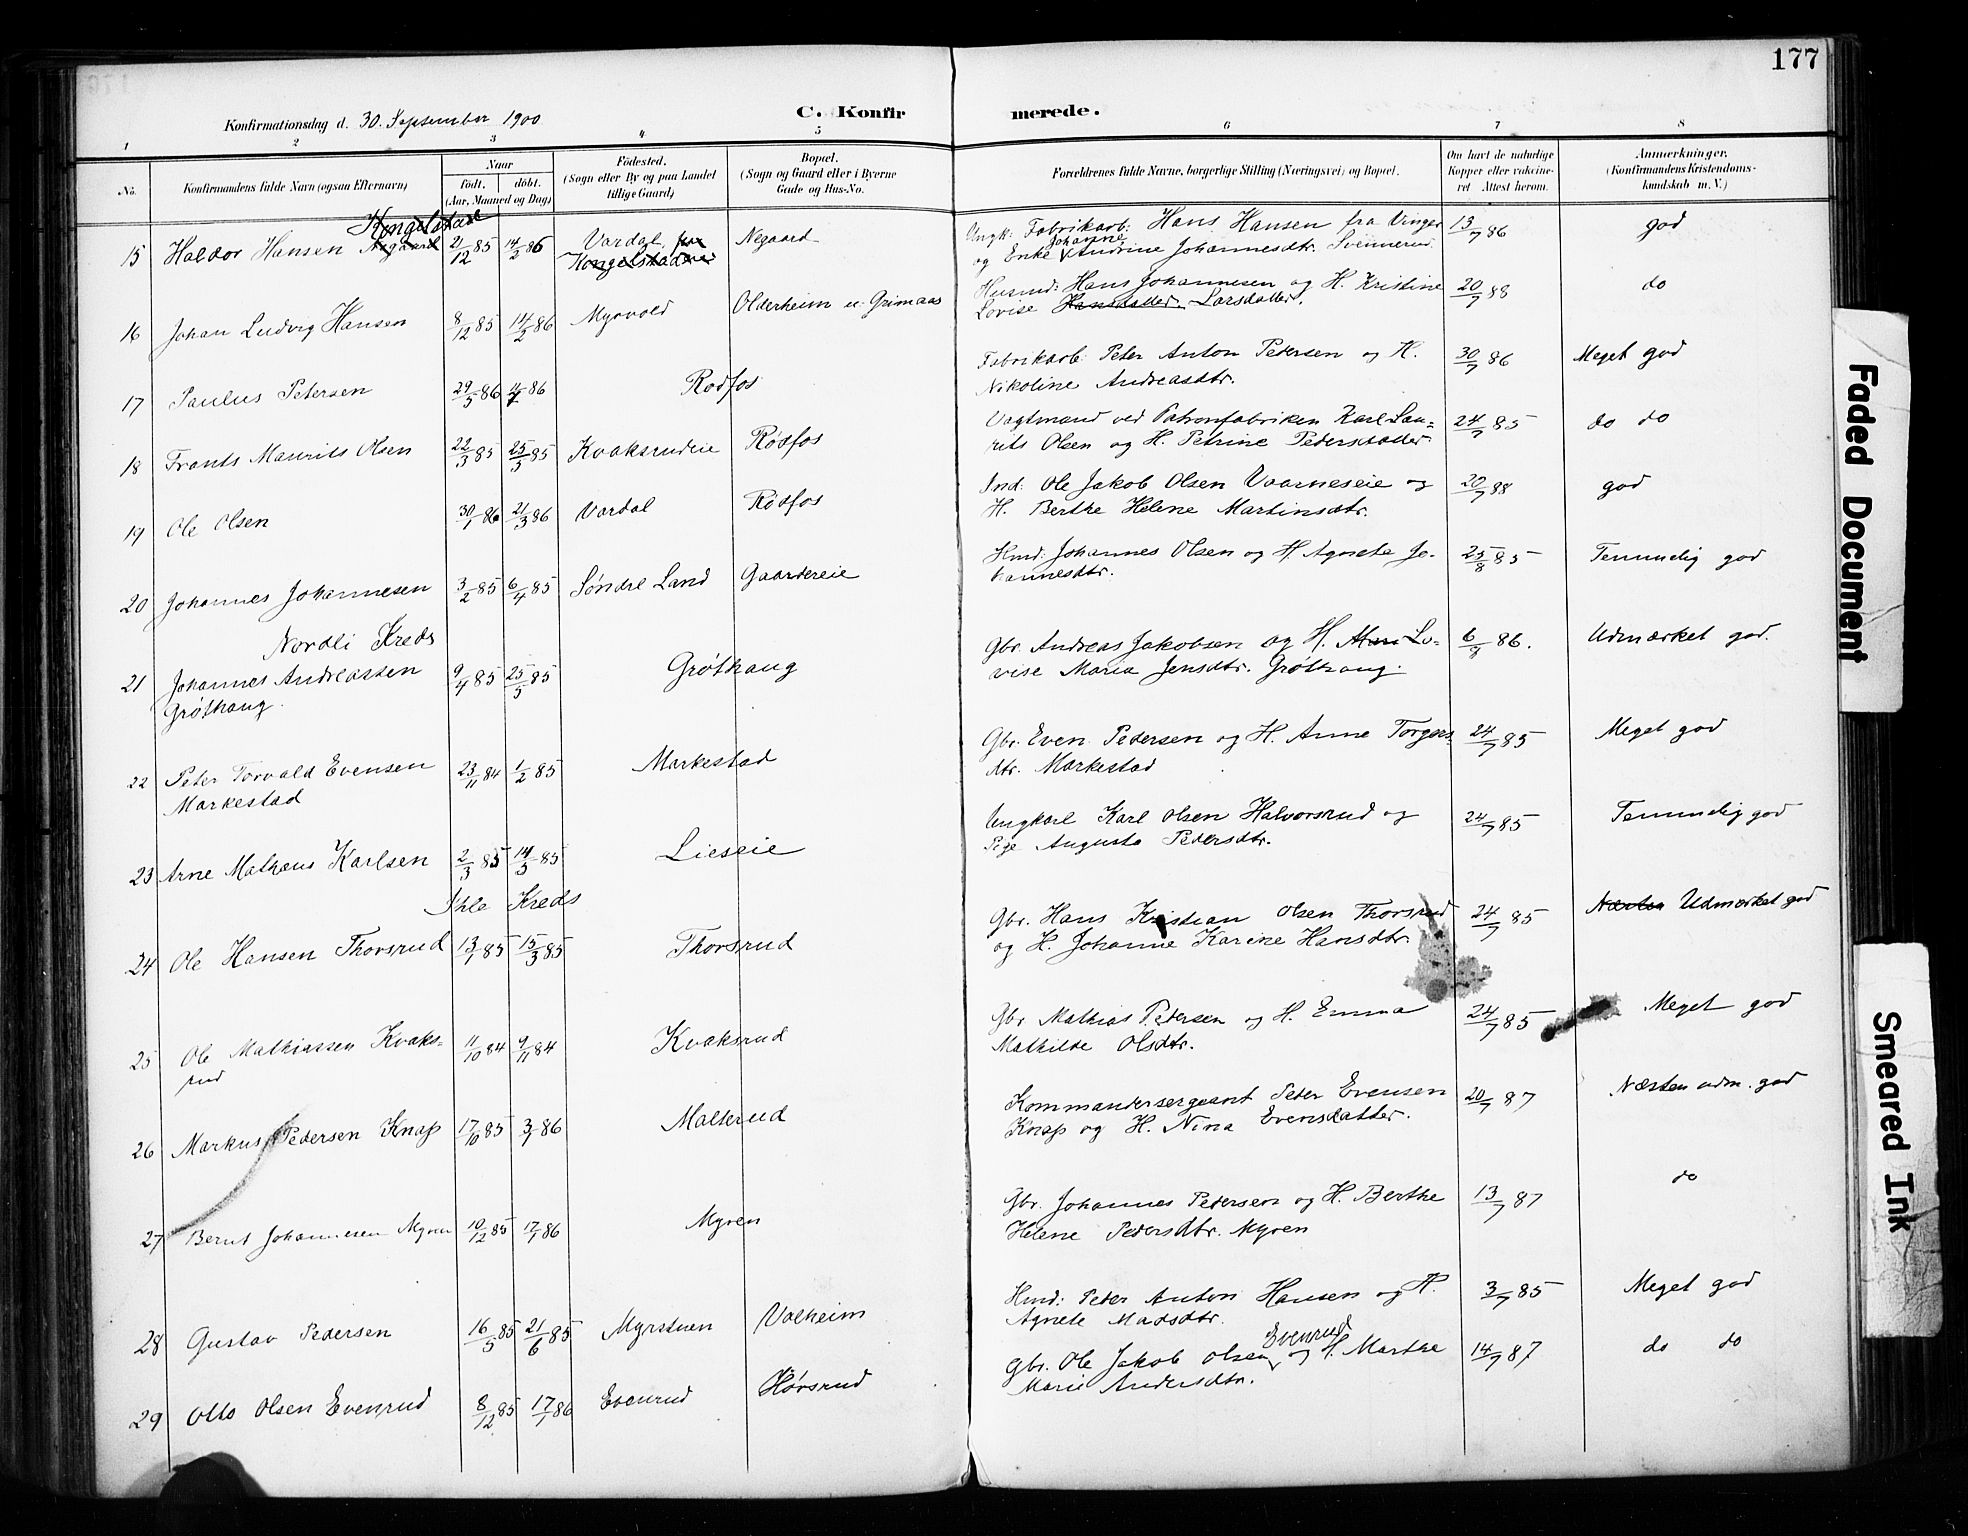 177
Konfirmationsdag d. 30. September 1900
C. Konfirmerede.
1 2 3 4 5 6 7 8
No.
Konfirmandens fulde Navn (ogsaa Efternavn)
Naar
født. døbt.
(Aar, Maaned og Dag)
Fødested.
(Sogn eller By og paa Landet
tillige Gaard)
Bopæl.
(Sogn og Gaard eller i Byerne
Gade og Hus-No.
Forældrenes fulde Navne, borgerlige Stilling (Næringsvei) og Bopæl.
Om havt de naturlige
Kopper eller vakcineret
Attest herom.
Anmærkninger.
(Konfirmandens Kristendomskundskab
m. V.)
Kongelstad
15 Haldor Hansen Negaard 21/12 85 14/2 86 Vardal, Kongelstadeie Negaard
Ungk: Fabrikarb: Hans Hansen fra Vinger
og Enke Johanne Andrine Johannesdtr. Svennerud 13/7 86 god
16 Johan Ludvig Hansen 8/12 85 14/2 86 Myrvold Olderheim u. Grimaas
Husmd: Hans Johannesen og H. Kristine
Lovise Hansdatter Larsdatter. 20/7 88 do
17 Paulus Petersen 29/5 86 4/7 86 Rødfos
Fabrikarb: Peter Anton Petersen og H.
Nikoline Andreasdtr. 30/7 86 Meget god
18 Frants Maurits Olsen 22/3 85 25/5 85 Kvaksrudeie Rødfos
Vagtmand ved Patronfabriken Karl Lau=
rits Olsen og H. Petrine Pedersdatter 24/7 85 do do
19 Ole Olsen 30/1 86 21/3 86 Vardal Rødfos
Ind: Ole Jakob Olsen Vaarneseie og
H. Berthe Helene Martinsdtr. 20/7 88 god
20 Johannes Johannesen 3/2 85 6/4 85 Søndre Land Gaardereie
Hmd: Johannes Olsen og H. Agnete Jo-
hannesdtr. 25/8 85 Temmelig god
Nordli Kreds
21 Johannes Andreassen
Grøthaug. 9/4 85 25/5 85 Grøthaug
Gbr. Andreas Jakobsen og H. Mari Lo=
vise Maria Jensdtr. Grøthaug. 6/8 86. Udmærket god.
22 Peter Torvald Evensen
Markestad 23/11 84 1/2 85 Markestad
Gbr. Even Pedersen og H. Anne Torgers=
dtr. Markestad 24/7 85 Meget god
23 Arne Mathæus Karlsen 2/3 85 14/5 85 Lieseie
Ungkarl Karl Olsen Halvorsrud og
Pige Augusta Pedersdtr. 24/7 85 Temmelig god
Ihle Kreds
24 Ole Hansen Thorsrud 13/1 85 15/3 85 Thorsrud
Gbr. Hans Kristian Olsen Thorsrud
og H. Johanne Karine Hansdtr. 24/7 85 Næsten Udmærket god
25 Ole Mathiassen Kvaks=
rud 11/10 84 9/11 84 Kvaksrud
Gbr Mathias Petersen og H. Emma
Mathilde Olsdtr. 24/7 85 Meget god
26 Markus Pedersen Knap 17/10 85 3/1 86 Malterud
Kommandersergeant Peter Evensen
Knap og H. Nina Evensdatter. 20/7 87 Næsten udm. god
27 Bernt Johannesen Myren 10/12 85 17/1 86 Myren
Gbr. Johannes Petersen og H. Berthe
Helene Pedersdtr. Myren 13/7 87 do
28 Gustav Pedersen 16/5 85 21/6 85 Myrstuen Valheim
Hmd: Peter Anton Hansen og H.
Agnete Madsdtr. 3/7 85 Meget god
29 Otto Olsen Evenrud 8/12 85 17/1 86 Evenrud Hørsrud
Gbr. Ole Jakob Olsen Evenrud og H. Marthe
Marie Andersdtr. 14/7 87 do do
Faded Document
Smeared Ink